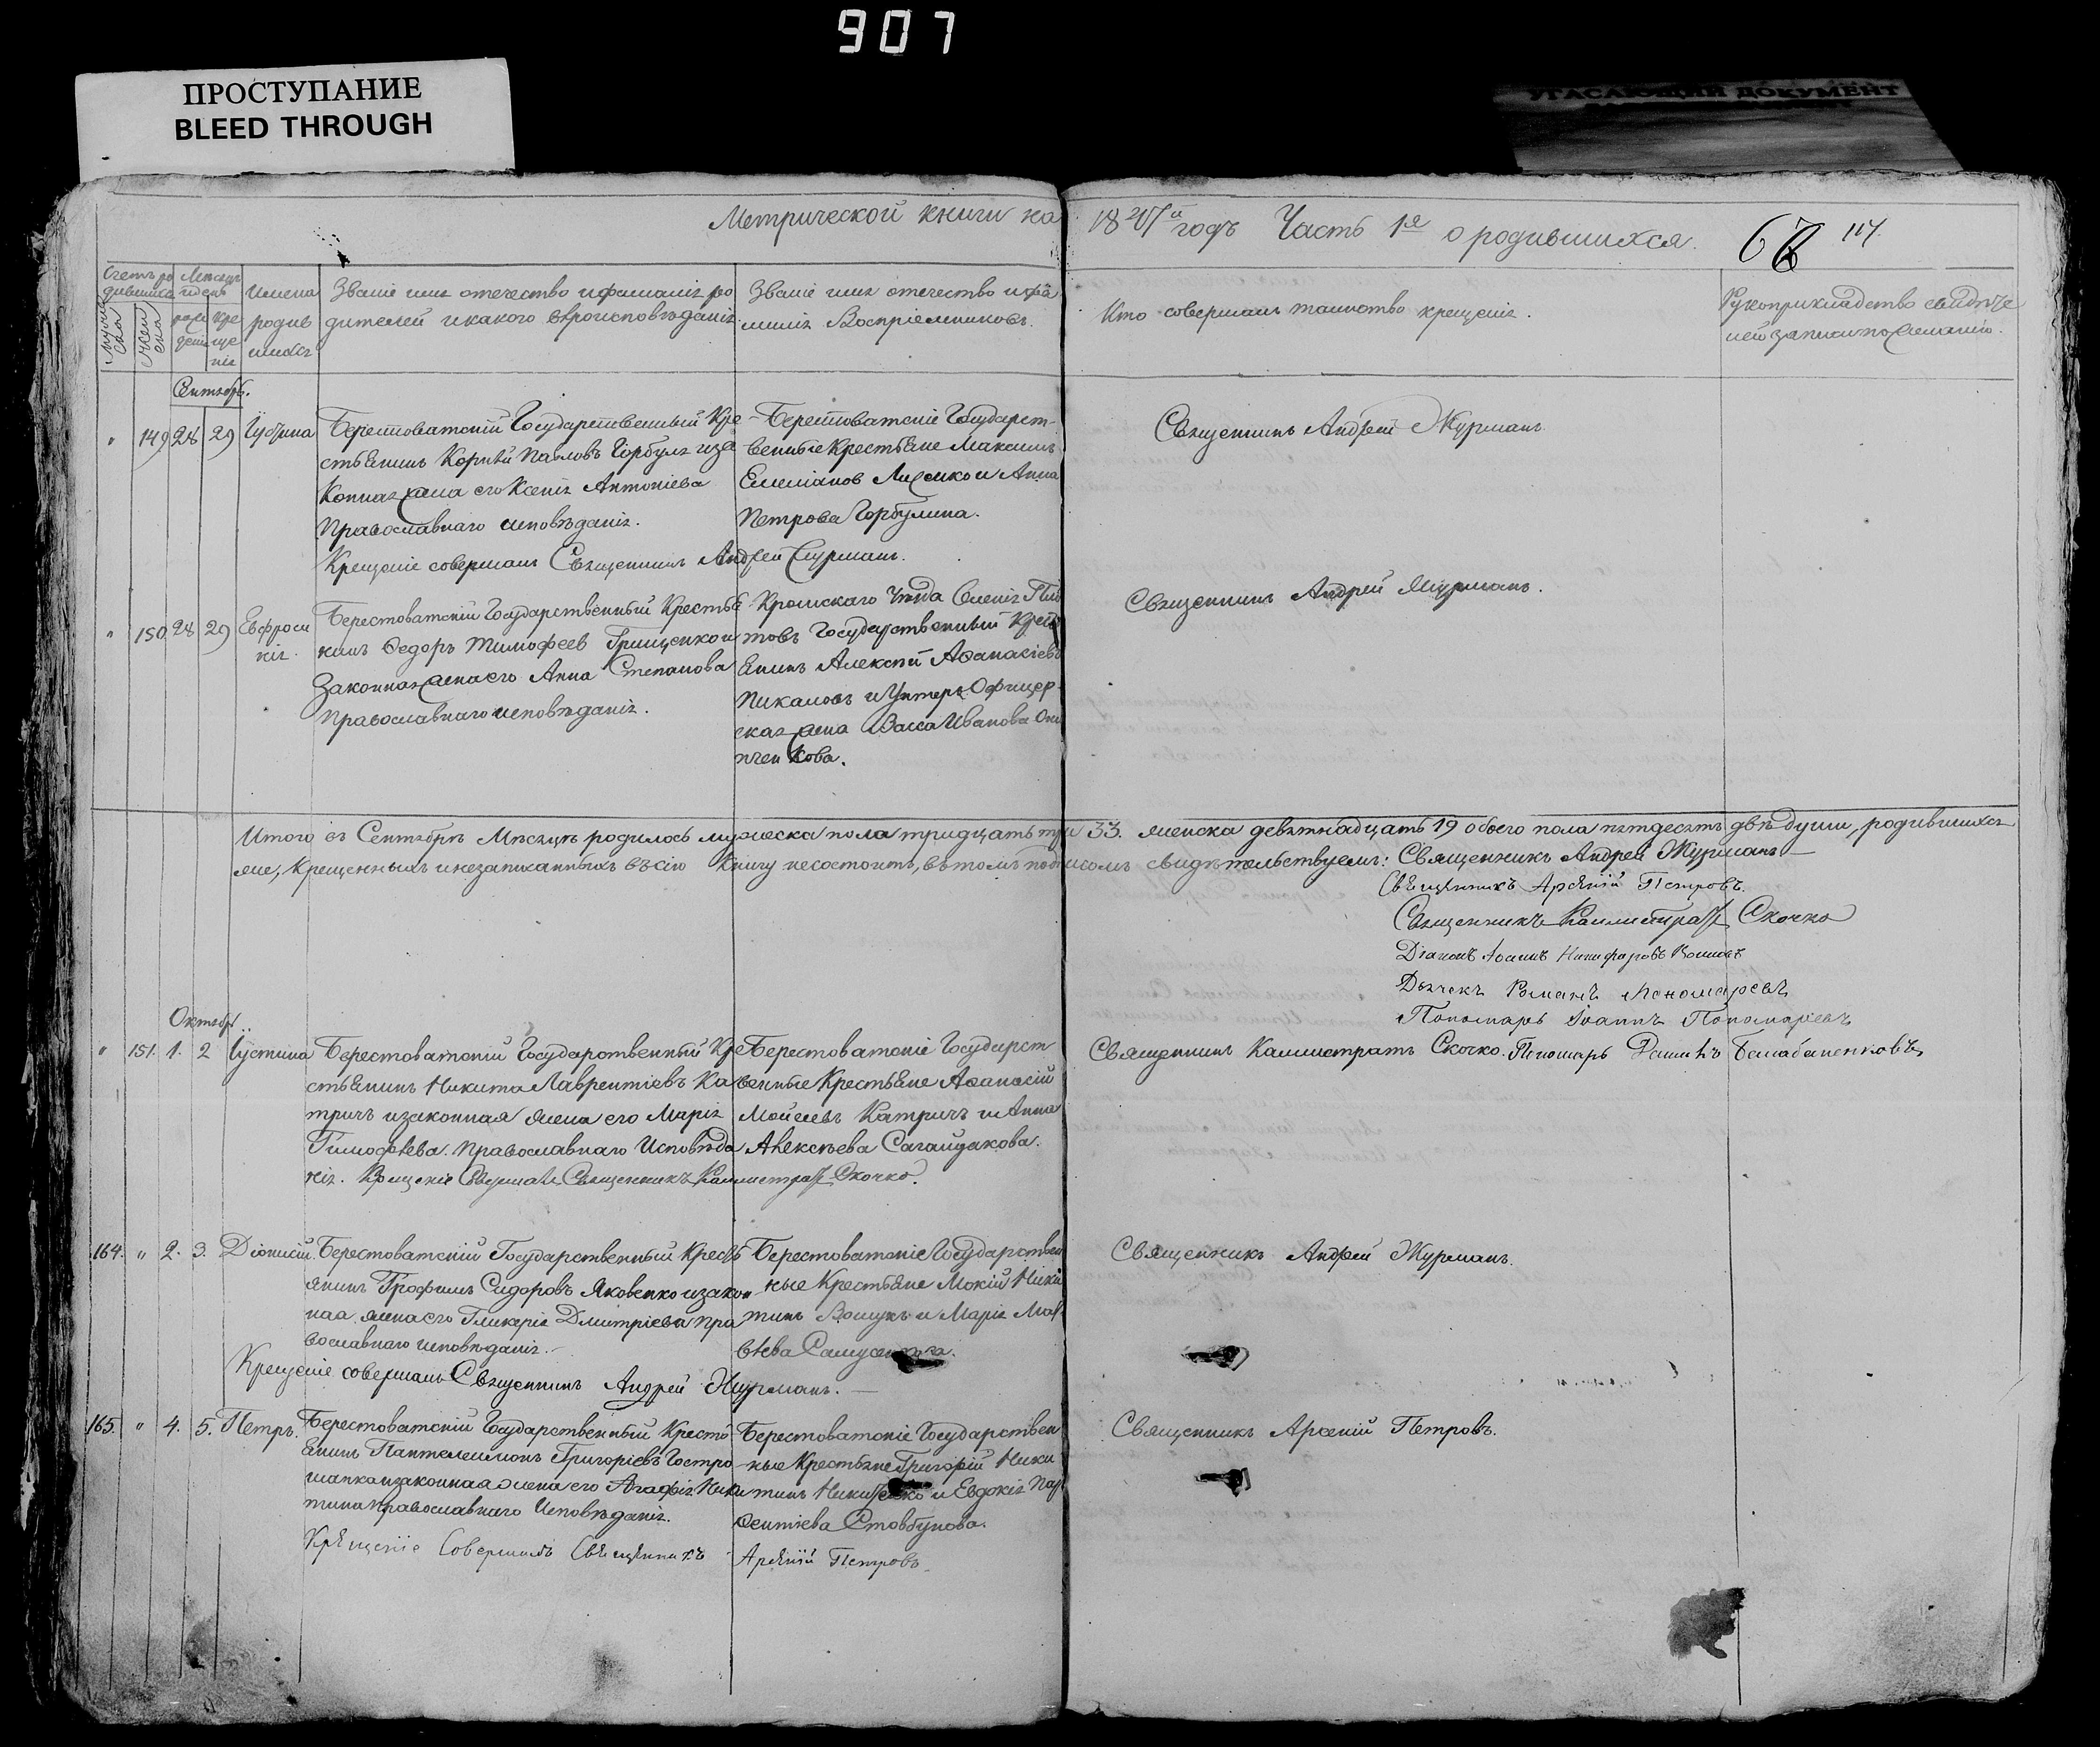 907
ПРОСТУПАНИЕ
BLEED THROUGH
УГАСАЮЩИЙ ДОКУМЕНТ
Метрической книги на 18 годъ Часть 1я о родившихся. 117.
Счетъ родившихся
Мужеска
Женска
Месяцъ и день
рождения
крещенія
Имена родившихся
Званіе имя отечество и фамилія ро
дителей и какого вѣроисповѣданія.
Званіе имя отечество и фа
милія Воспріемниковъ.
Кто совершалъ таинство крещенія.
Рукоприкладство свидѣте
лей записи по желанію.
Сентябрь.
" 149 28 29 Іустина
Берестоватскій Государственный Кре
стьянинъ Корнѣй Павловъ Горбуля и за
конная жена его Ксенія Антоніева
Православнаго исповѣданія.
Крещеніе совершалъ Священникъ Андрей Журманъ.
Берестоватскіе Государст-
венные Крестьяне Максимъ
Емеліановъ Лисенко и Анна
Петрова Горбулина.
Священникъ Андрей Журманъ
" 150 28 29 Евфроси
нія.
Берестоватскій Государственный Крестья
нинъ Федоръ Тимофеев Грищенко и
Законная жена его Анна Степанова
Православнаго исповѣданія.
Кромскаго Уѣзда Селенія
товъ Государственный Крест
янинъ Алексѣй Афанасіевъ
Пикаловъ и Унтеръ-Офицер
ская жена Васса Иванова Они
пченкова.
Священникъ Андрей Журманъ.
Итого въ Сентябрѣ Мѣсяцѣ родилось мужеска пола тридцать три 33. женска девятнадцать 19 обоего пола пятдесятъ двѣ души, родившихся
же, крещенныхъ и незаписанныхъ въ сію книгу не состоитъ, въ томъ подписомъ свидѣтельствуемъ: Священникъ Андрей Журманъ
Священникъ Арсеній Петровъ.
Священникъ Каллистратъ Скочко
Діаконъ Іоаннъ Никифоровъ
Дьячекъ Романъ Пономаревъ
Пономарь Іоаннъ Пономаревъ
Октябрь.
" 151. 1. 2 Іустина
Берестоватскій Государственный Кре
стьянинъ Никита Лаврентіевъ Ка
тричъ и законная жена его Марія
Тимофѣева. Православнаго Исповѣда
нія. Крещеніе Совершалъ Священникъ Каллистратъ Скочко.
Берестоватскіе Государст
венные Крестьяне Афанасій
Моисеевъ Катричъ и Анна
Алексѣева Сагайдакова.
Священникъ Каллистратъ Скочко. Пономарь Балабаненковъ
164. " 2. 3. Діонисій.
Берестоватскій Государственный Кресть
янинъ Трофимъ Сидоровъ Яковенко и закон
ная жена его Гликерія Дмитріева пра
вославнаго исповѣданія.
Крещеніе совершалъ Священникъ Андрей Журманъ.
Берестоватскіе Государствен
ные Крестьяне Мокій Ники
тинъ и Марія Мат
вѣева
Священникъ Андрей Журманъ.
165. " 4. 5. Петръ.
Берестоватскій Государственный Кресть
янинъ Пантелеимонъ Григоріевъ Гостро
шапка и законная жена его Агафія Ники
тина Православнаго Исповѣданія.
Крещеніе Совершалъ Священникъ Арсеній Петровъ.
Берестоватскіе Государствен
ные Крестьяне Григорій Ники
тинъ Никитенко и Евдокія Пар
фентіева Стовбунова.
Священникъ Арсеній Петровъ.